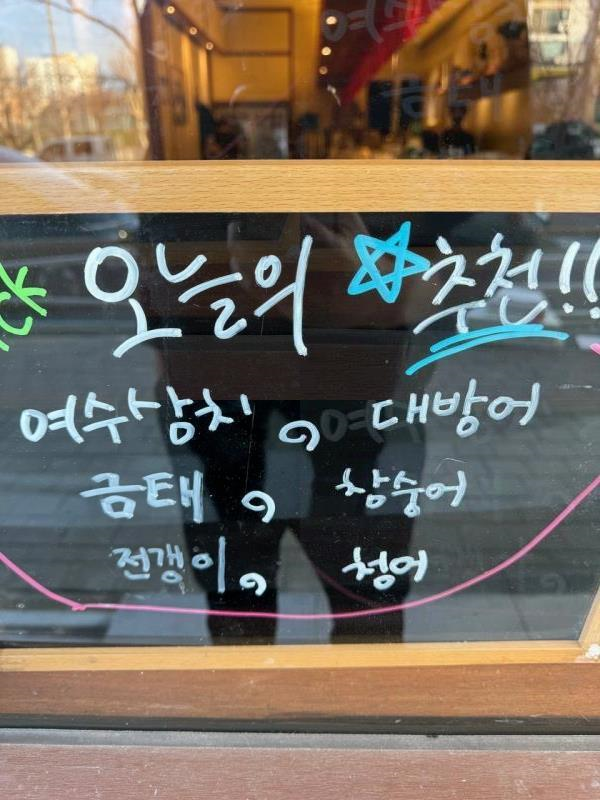 오늘의 ☆ 추천!!
여수삼치, 대방어
금태, 참숭어
전갱이, 청어